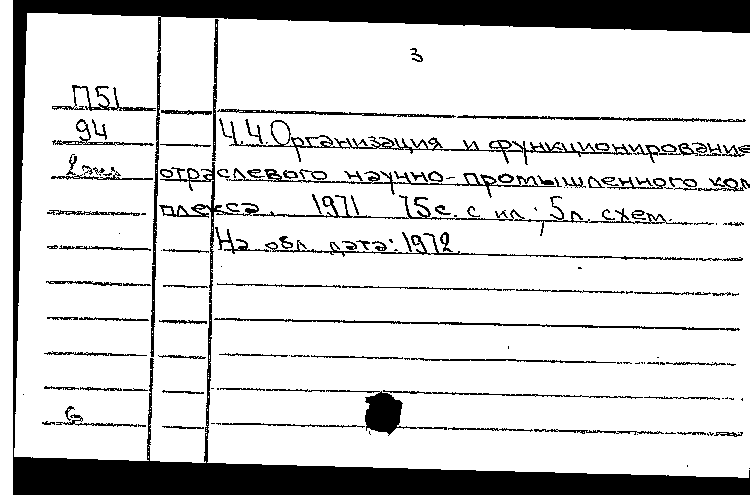 3
П51
94 Ч.4.Организация и функционирование
2экз отраслевого научно-промышленного ком
плекса. 1971 75с. с ил.; 5л. схем.
На обл. дата: 1972.
6